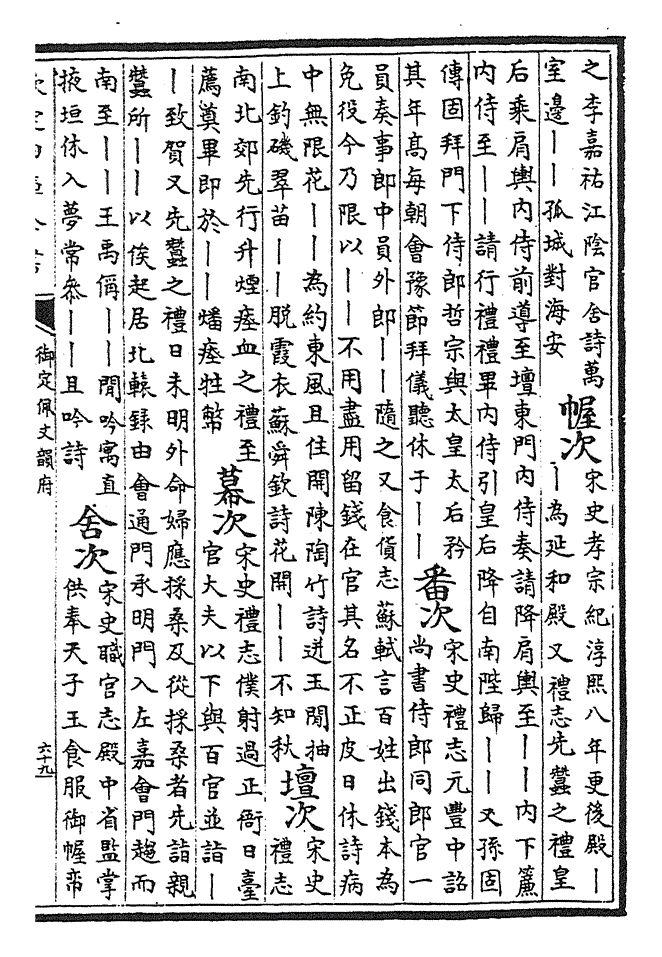 之李嘉祐江陰官舍詩萬
室邊——孤城對海安
幄次
宋史孝宗紀淳熙八年更後殿—
—為延和殿又禮志先蠶之禮皇
后乘肩輿內侍前導至壇東門內侍奏請降肩輿至——內下簾
內侍至——請行禮禮畢內侍引皇后降自南陛歸——又孫固
傳固拜門下侍郎哲宗與太皇太后矜
其年高每朝會豫節拜儀聽休于——
番次
宋史禮志元豐中詔
尚書侍郎同郎官一
員奏事郎中員外郎——隨之又食貨志蘇軾言百姓出錢本為
免役今乃限以——不用盡用留錢在官其名不正皮日休詩病
中無限花——為約東風且住開陳陶竹詩迸玉閒抽
上釣磯翠苗——脫霞衣蘇舜欽詩花開——不知秋
壇次
宋史
禮志
南北郊先行升煙瘞血之禮至
薦奠畢即於——燔瘞牲幣
幕次
宋史禮志僕射過正衙日臺
官大夫以下與百官並詣—
—致賀又先蠶之禮日未明外命婦應採桑及從採桑者先詣親
蠶所——以俟起居北轅錄由會通門承明門入左嘉會門趨而
南至——王禹偁——閒吟寓直
掖垣休入夢常參——且吟詩
舍次
宋史職官志殿中省監掌
供奉天子玉食服御幄帟
御定佩文韻府
六十九